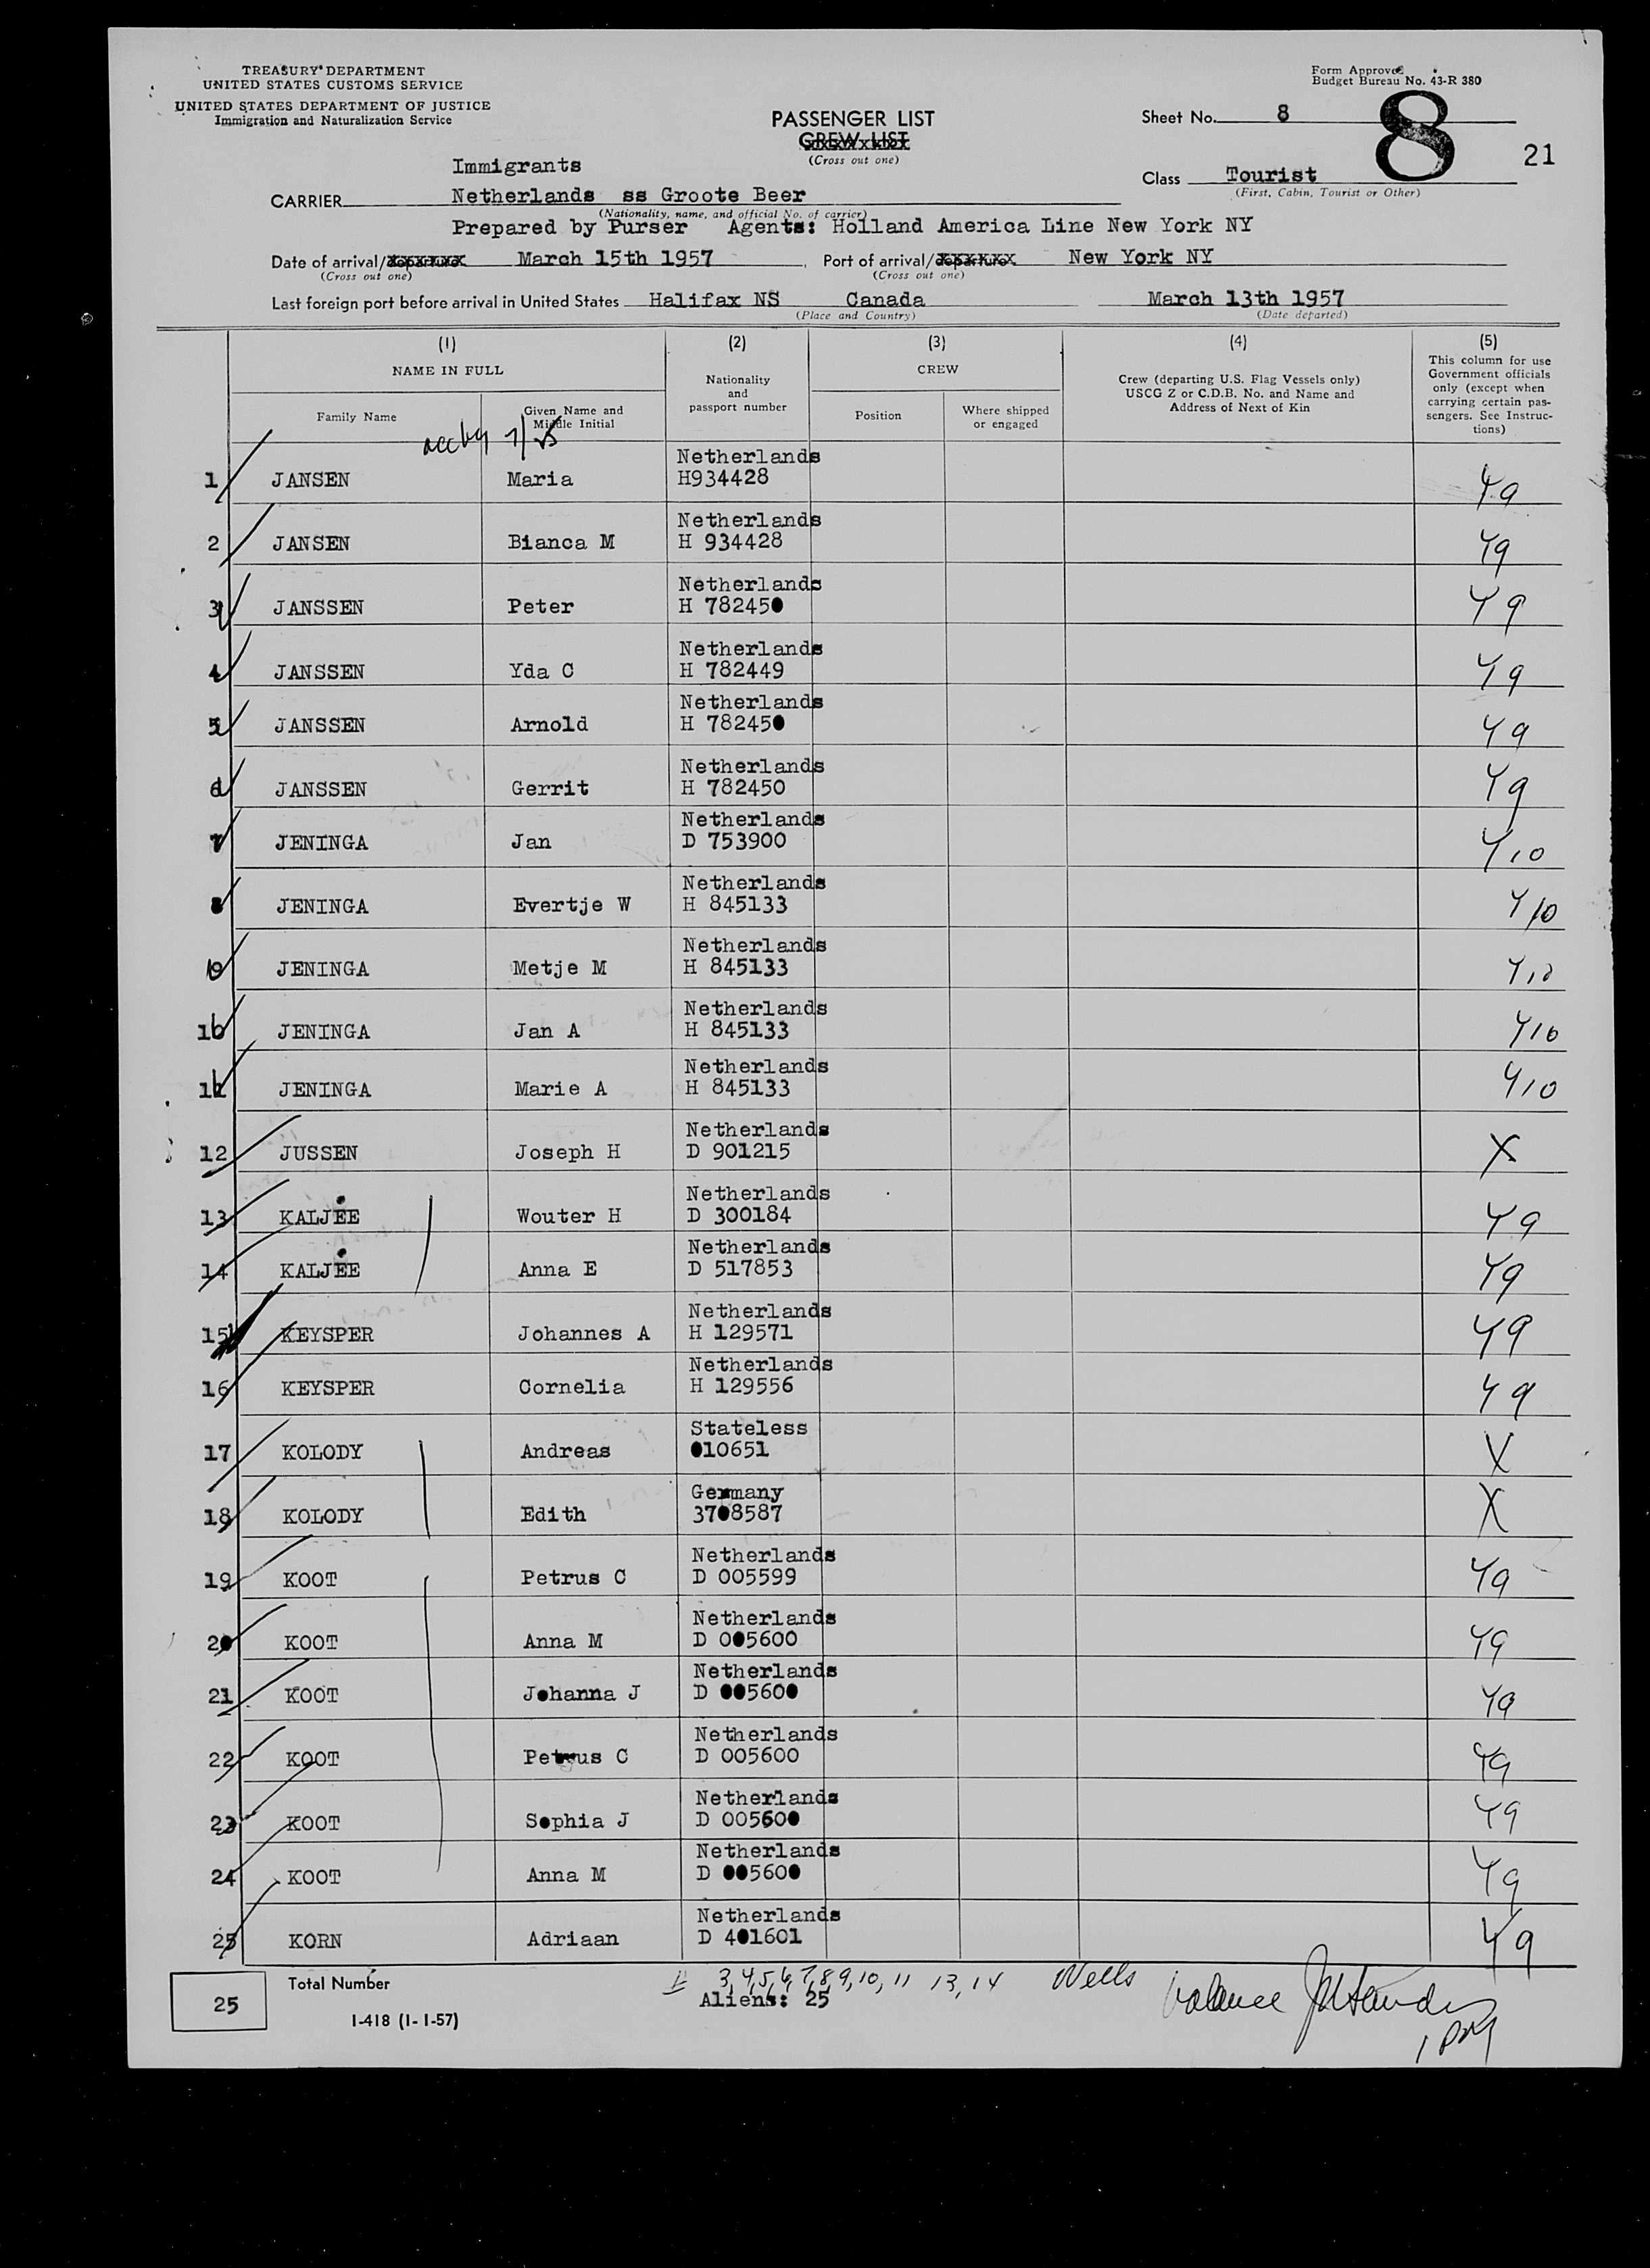 TREASURY DEPARTMENT
UNITED STATES CUSTOMS SERVICE
UNITED STATES DEPARTMENT OF JUSTICE
Immigration and Naturalization Service
Form Approved
Budget Bureau No. 43-R 380
PASSENGER LIST
CREW LIST
(Cross out one)
Sheet No. 8
8
21
Immigrants
Class Tourist
(First, Cabin, Tourist or Other)
CARRIER Netherlands ss Groote Beer
(Nationality, name, and official No. of carrier)
Prepared by Purser Agents: Holland America Line New York NY
Date of arrival/departure March 15th 1957 Port of arrival/departure New York NY
(Cross out one) (Cross out one)
Last foreign port before arrival in United States Halifax NS Canada March 13th 1957
(Place and Country) (Date departed)
(1) (2) (3) (4) (5)
NAME IN FULL
Family Name
Given Name and Middle Initial
Nationality and passport number
CREW
Position
Where shipped or engaged
Crew (departing U.S. Flag Vessels only)
USCG Z or C.D.B. No. and Name and
Address of Next of Kin
This column for use
Government officials
only (except when
carrying certain pas-
sengers. See Instruc-
tions)
1 JANSEN Maria Netherlands H934428 49
2 JANSEN Bianca M Netherlands H 934428 49
3 JANSSEN Peter Netherlands H 782450 49
4 JANSSEN Yda C Netherlands H 782449 49
5 JANSSEN Arnold Netherlands H 782450 49
6 JANSSEN Gerrit Netherlands H 782450 49
7 JENINGA Jan Netherlands D 753900 410
8 JENINGA Evertje W Netherlands H 845133 410
9 JENINGA Metje M Netherlands H 845133 410
10 JENINGA Jan A Netherlands H 845133 410
11 JENINGA Marie A Netherlands H 845133 410
12 JUSSEN Joseph H Netherlands D 901215 X
13 KALJEE Wouter H Netherlands D 300184 49
14 KALJEE Anna E Netherlands D 517853 49
15 KEYSPER Johannes A Netherlands H 129571 49
16 KEYSPER Cornelia Netherlands H 129556 49
17 KOLODY Andreas Stateless 010651 X
18 KOLODY Edith Germany 3708587 X
19 KOOT Petrus C Netherlands D 005599 49
20 KOOT Anna M Netherlands D 005600 49
21 KOOT Johanna J Netherlands D 005600 49
22 KOOT Petrus C Netherlands D 005600 49
23 KOOT Sophia J Netherlands D 005600 49
24 KOOT Anna M Netherlands D 005600 49
25 KORN Adriaan Netherlands D 401601 49
25
Total Number
3,4,5,6,7,8,9,10,11 13,14 Wells
Aliens: 25
balance
1 PM
I-418 (1-1-57)